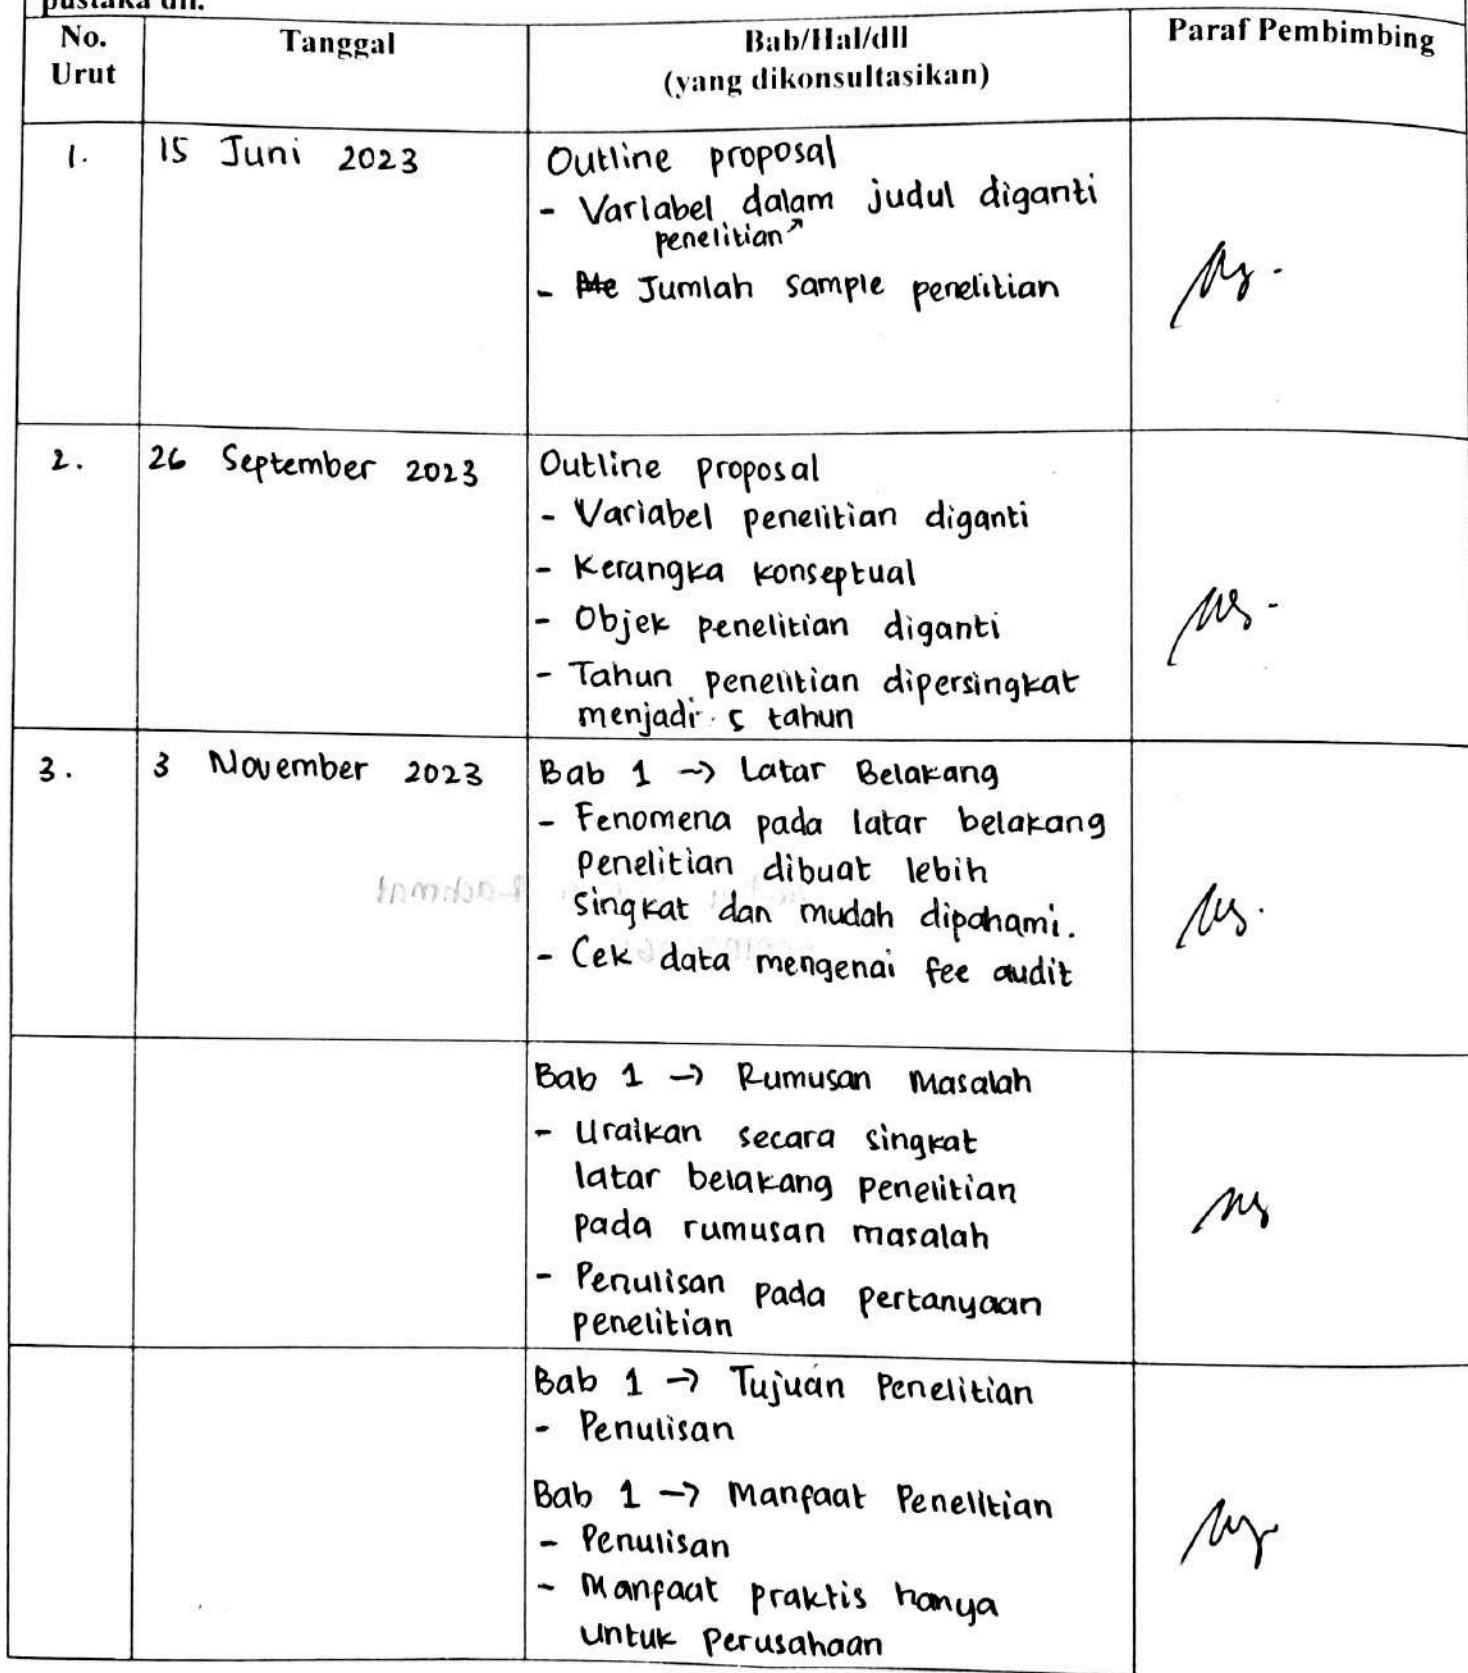 pustaka dll.
No. Urut
Tanggal
Bab/Hal/dll
(yang dikonsultasikan)
Paraf Pembimbing
1.
15 Juni 2023
Outline proposal
- Variabel dalam judul diganti
penelitian
- Me Jumlah sample penelitian
2.
26 September 2023
Outline proposal
- Variabel penelitian diganti
- Kerangka konseptual
- Objek penelitian diganti
- Tahun penelitian dipersingkat
menjadi 5 tahun
3.
3 November 2023
Bab 1 → Latar Belakang
- Fenomena pada latar belakang
penelitian dibuat lebih
singkat dan mudah dipahami.
- Cek data mengenai fee audit
Bab 1 → Rumusan Masalah
- Uraikan secara singkat
latar belakang penelitian
pada rumusan masalah
- Penulisan pada pertanyaan
penelitian
Bab 1 → Tujuan Penelitian
- Penulisan
Bab 1 → Manfaat Penelitian
- Penulisan
- Manfaat praktis hanya
untuk perusahaan